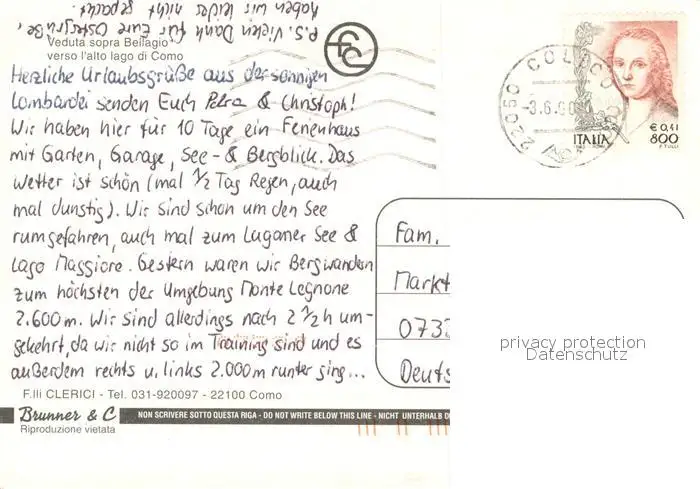 P.S. Vielen Dank für Eure Ostergrüße,
haben wir leider nicht gepackt.
Veduta sopra Bellagio
verso l'alto lago di Como
Herzliche Urlaubsgrüße aus der sonnigen
Lombardei senden Euch Petra & Christoph!
Wir haben hier für 10 Tage ein Ferienhaus
mit Garten, Garage, See- & Bergblick. Das
Wetter ist schön (mal 1/2 Tag Regen, auch
mal dunstig). Wir sind schon um den See
rumgefahren, auch mal zum Luganer See &
Lago Maggiore. Gestern waren wir Bergwandern
zum höchsten der Umgebung Monte Legnone
2.600m. Wir sind allerdings nach 2 1/2 h um-
gekehrt, da wir nicht so im Training sind und es
außerdem rechts u. links 2.000m runter ging...
F.lli CLERICI - Tel. 031-920097 - 22100 Como
Brunner & C
Riproduzione vietata
NON SCRIVERE SOTTO QUESTA RIGA - DO NOT WRITE BELOW THIS LINE - NICHT UNTERHALB D
22050 COLICO
-3.6.00
ITALIA
€ 0,41
800
F. TULLI
Fam.
Markt
073
Deuts
privacy protection
Datenschutz